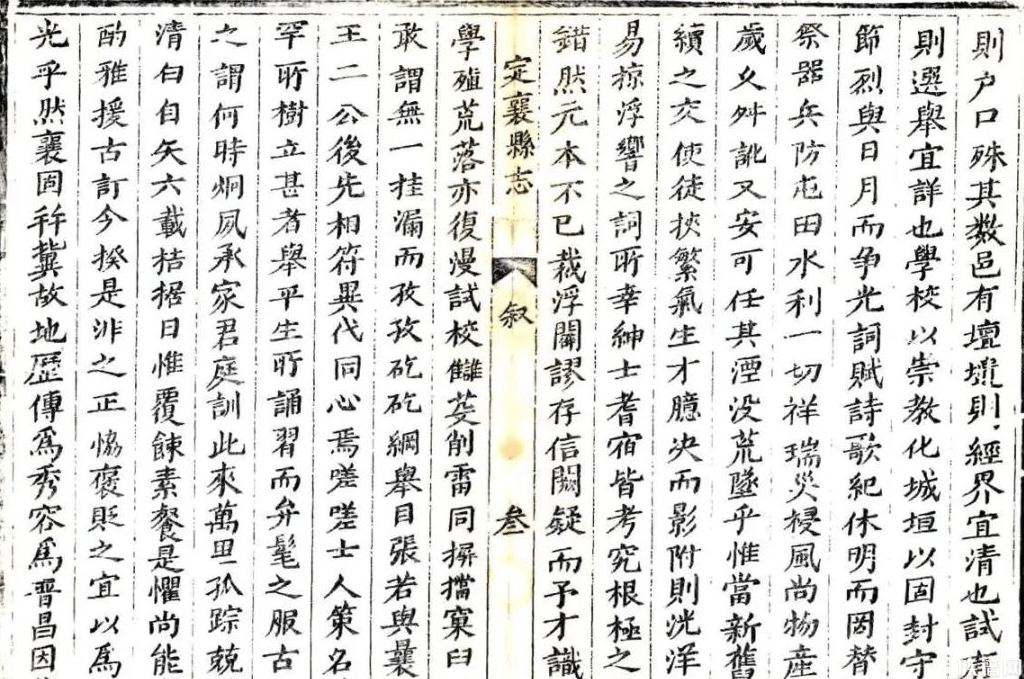 則户口殊其数邑有壇壝則經界宜清也試
則選舉宜詳也學校以崇教化城垣以固封守
節烈與日月而争光詞賦詩歌紀休明而罔替
祭器兵防屯田水利一切祥瑞災祲風尚物產
歲久舛訛又安可任其湮没荒墜乎惟當新舊
續之交使徒挾繁氣生才臆决而影附則洸洋
易掠浮響之詞所幸紳士耆宿皆考究根極之
錯然元本不已裁浮闢謬存信闕疑而予才識
定襄縣志 叙 叁
學殖荒落亦復漫試校讎芟削雷同摒擋窠臼
敢謂無一挂漏而孜孜矻矻綱舉目張若與曩
王二公後先相符異代同心焉嗟嗟士人策名
罕所樹立甚者舉平生所誦習而弁髦之服古
之謂何時烱夙承家君庭訓此來萬里孤踪兢
清白自矢六載拮据日惟覆餗素餐是懼尚能
酌雅援古訂今揆是非之正恊褒貶之宜以爲
光乎然襄固幷冀故地歷傳爲秀容爲晋昌因